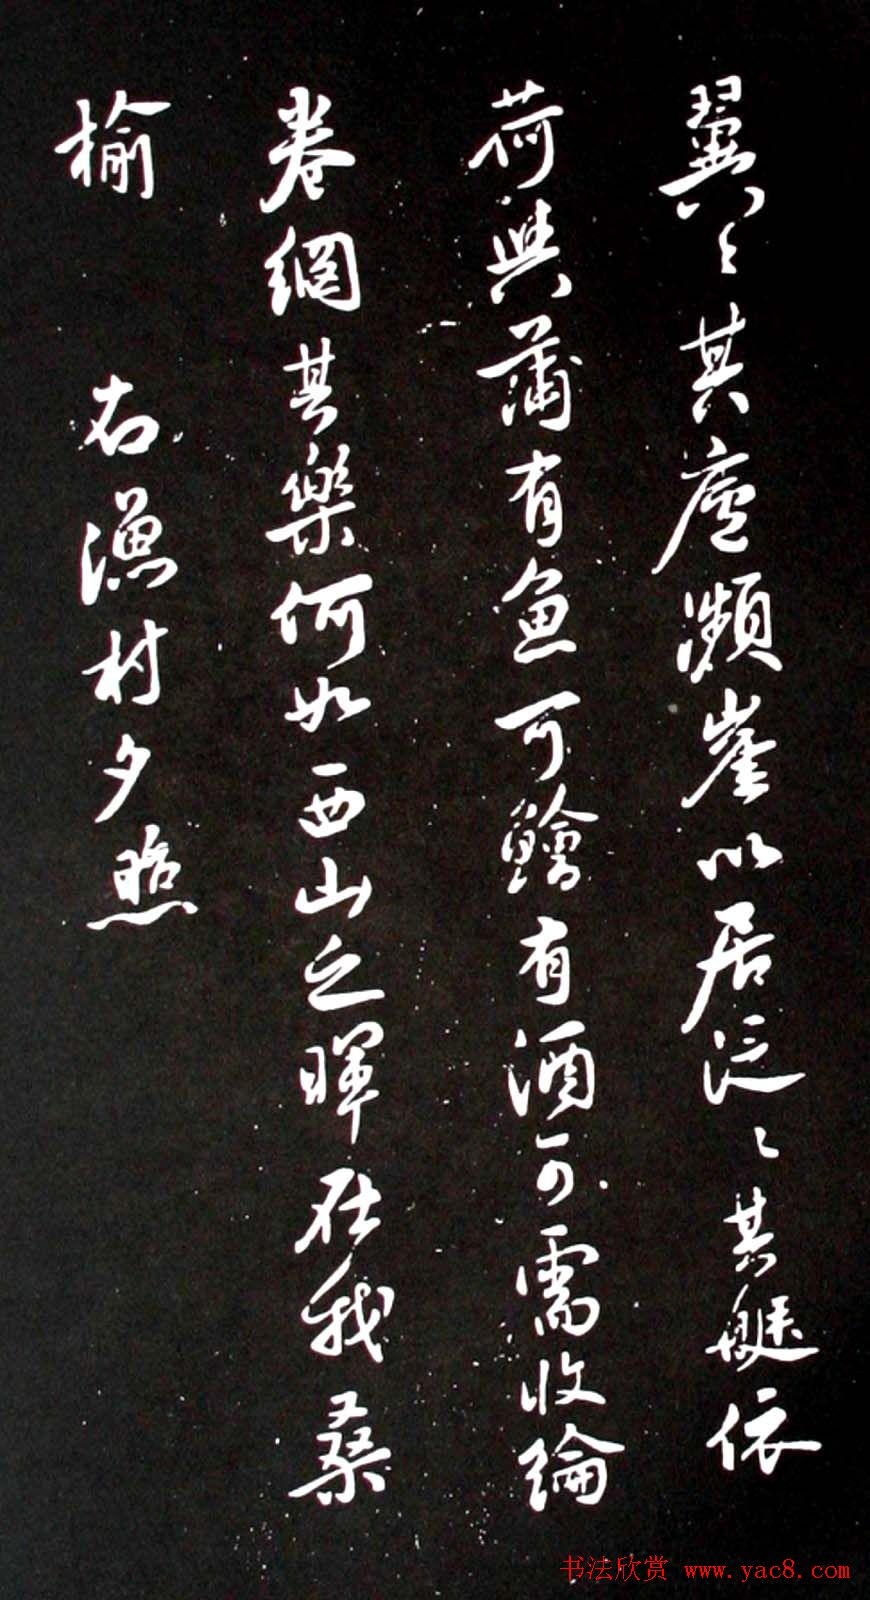 翼〻其廬瀕崖以居泛〻其艇依
荷與蒲有魚可鱠有酒可需收綸
卷網其樂何如西山之暉在我桑
榆
右漁村夕照
书法欣赏 www.yac8.com